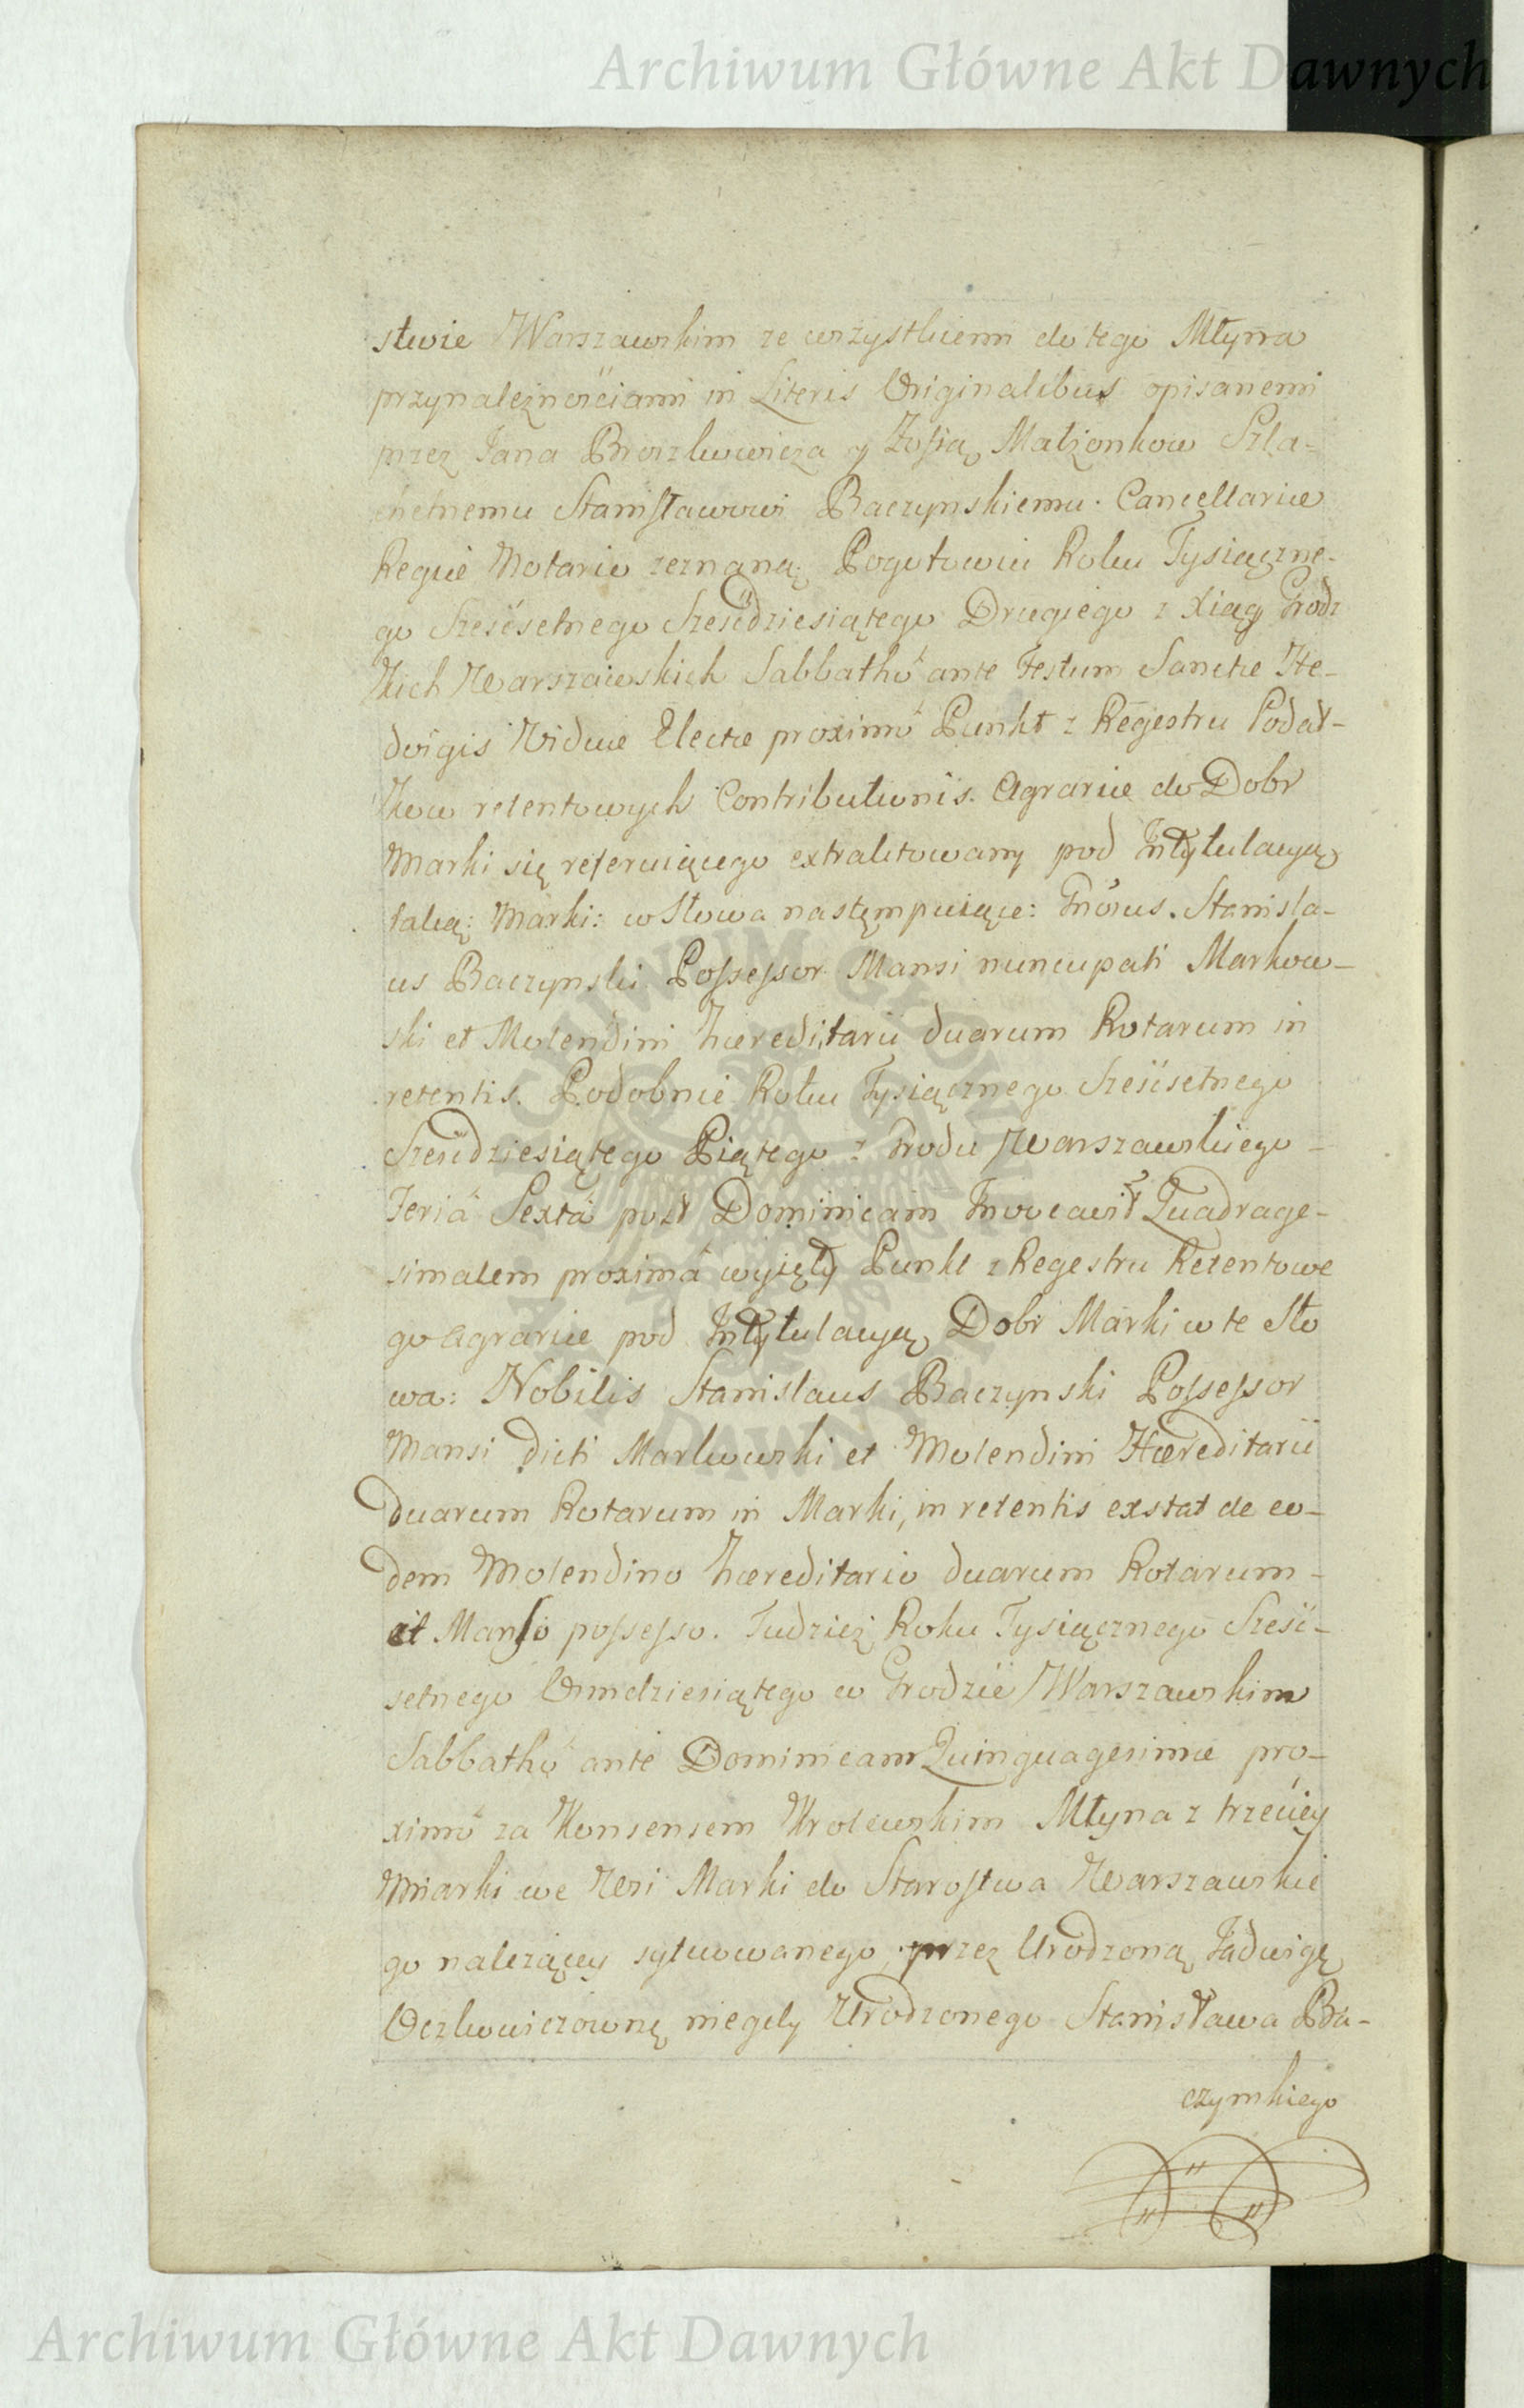 Archiwum Główne Akt Dawnych
stwie Warszawskim ze wszystkiemi do tego Młyna
przynależnościami in Literis Originalibus opisanemi
przez Jana i Zofią Małżonkow Szla-
chetnemu Stanisławowi Baczynskiemu Cancellariæ
Regiæ Notario zeznaną; Pogotowiu Roku Tysiączne-
go Sześćsetnego Sześćdziesiątego Drugiego z Xiąg Grodz
kich Warszawskich Sabbathô ante Festum Sanctæ He-
dvigis Viduæ Electæ proximô Punkt z Regestru Podat-
kow retentowych Contributionis Agrariæ do Dobr
Marki się referuiącego extraktowany pod Intytulacyą
taką: Marki: w Słowa następuiące: Gnosus. Stanisla-
us Baczynski Possessor Mansi nuncupati Markow-
ski et Molendini hæreditarii duarum Rotarum in
retentis. Podobnie Roku Tysiącznego Sześćsetnego
Sześćdziesiątego Piątego z Grodu Warszawskiego
Feriâ Sextâ post Dominicam Invocavit Quadrage-
simalem proximâ wyięty Punkt z Regestru Retentowe
go Agrariæ pod Intytulacyą Dobr Marki w te Sło
wa: Nobilis Stanislaus Baczynski Possessor
Mansi dicti Markowski et Molendini Hæreditarii
duarum Rotarum in Marki, in retentis exstat de eo-
dem Molendino hæreditario duarum Rotarum
et Manso possesso. Tudzież Roku Tysiącznego Sześć-
setnego Osmdziesiątego w Grodzie Warszawskim
Sabbathô ante Dominicam Quinquagesimæ pro-
ximô za Konsensem Krolewskim Młyna z trzeciey
Miarki we Wsi Marki do Starostwa Warszawskie
go należącey sytuowanego, przez Urodzoną Jadwigę
Oczkowiczownę niegdy Urodzonego Stanisława Ba-
czynskiego
Archiwum Główne Akt Dawnych